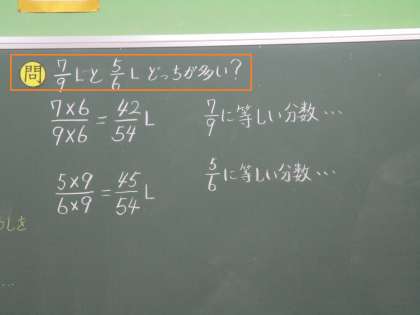 問 7/9 L と 5/6 L どっちが多い?
7×6/9×6 = 42/54 L
7/9 に等しい分数…
5×9/6×9 = 45/54 L
5/6 に等しい分数…
しを
…